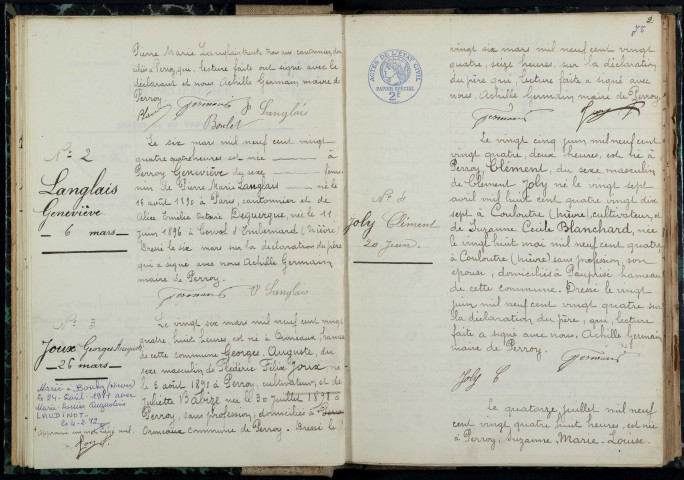 Pierre Marie Langlais trente trois ans, cantonnier, domi
cilié à Perroy, qui, lecture faite ont signé avec le
déclarant et nous Achille Germain maire de
Perroy.
Germain P Langlais
Boulet
N° 2
Langlais
Geneviève
6 mars
Le six mars mil neuf cent vingt
quatre heures est née à
Perroy Geneviève du sexe fémi
nin de Pierre Marie Langlais né le
16 août 1890 à Paris, cantonnier et de
Alice Emilie née le 11
juin 1896 à (Nièvre)
Dressé le six mars sur la déclaration du père
qui a signé avec nous Achille Germain
maire de Perroy.
Germain P Langlais
N° 3
Joux Georges Auguste
26 mars
Marié à (Nièvre)
le 24 avril avec
Marie Louise Augustine
LAUDINOT
Le vingt six mars mil neuf cent vingt
quatre, huit heures, est né à Ormeaux
de cette commune Georges, Auguste, du
sexe masculin de Félix Joux, né
le 6 août 1891 à Perroy, cultivateur, et de
Juliette née le 30 juillet 1898 à
Perroy, sans profession, domiciliés à
Ormeaux commune de Perroy. Dressé le
2
ACTES DE L'ETAT CIVIL
PAPIER SPECIAL
2F
vingt six mars mil neuf cent vingt
quatre, seize heures, sur la déclaration
du père qui, lecture faite a signé avec
nous, Achille Germain maire de Perroy.
Germain Joux
N° 4
Joly Clément
20 Juin
Le vingt cinq juin mil neuf cent
vingt quatre, deux heures, est né à
Perroy, Clément, du sexe masculin
de Clément Joly né le vingt sept
avril mil huit cent quatre vingt dix
sept à Couloutre (Nièvre), cultivateur, et
de Suzanne Cécile Blanchard, née
le vingt huit mai mil neuf cent quatre
à Couloutre (Nièvre) sans profession, son
épouse, domiciliés à hameau
de cette commune. Dressé le vingt
juin mil neuf cent vingt quatre sur
la déclaration du père, qui, lecture
faite a signé avec nous, Achille Germain
maire de Perroy.
Germain
Joly C
Le quatorze juillet mil neuf
cent vingt quatre huit heures, est née
à Perroy, Suzanne-Marie-Louise.